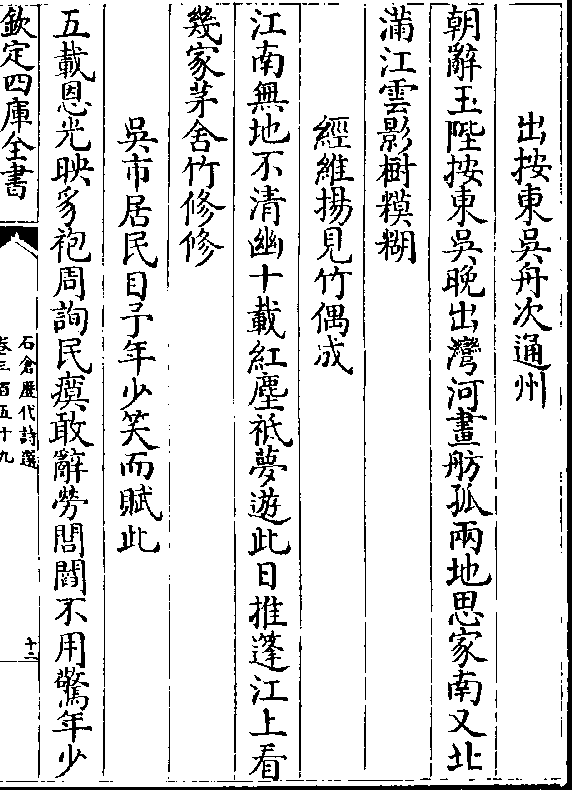 出按東吳舟次通州
朝辭玉陛按東吳晚出灣河畫舫孤兩地思家南又北
滿江雲影樹糢糊
經維揚見竹偶成
江南無地不清幽十載紅塵祗夢遊此日推蓬江上看
幾家茅舍竹修修
吳市居民目予年少笑而賦此
五載恩光映豸袍周詢民瘼敢辭勞閭閻不用驚年少
欽定四庫全書
石倉歷代詩選
卷三百五十九
十二